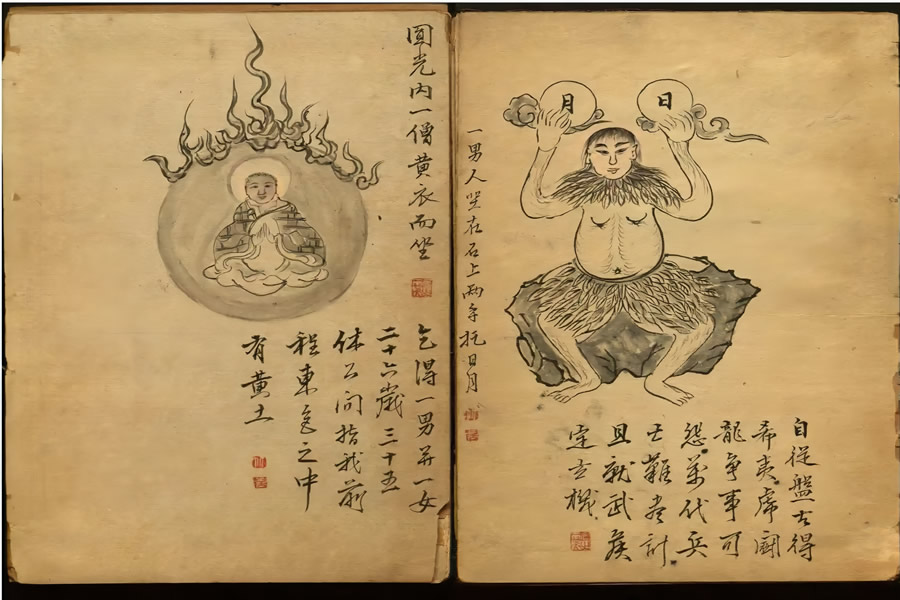 日
月
自從盤古得
希夷虎鬬
龍爭事可
怨萬代兵
士難盡計
且就武侯
定玄機
一男人坐在石上兩手托日月
圓光内一僧黃衣而坐
乞得一男并一女
二十六歲三十五
休公問指我前
程東邑之中
有黃土